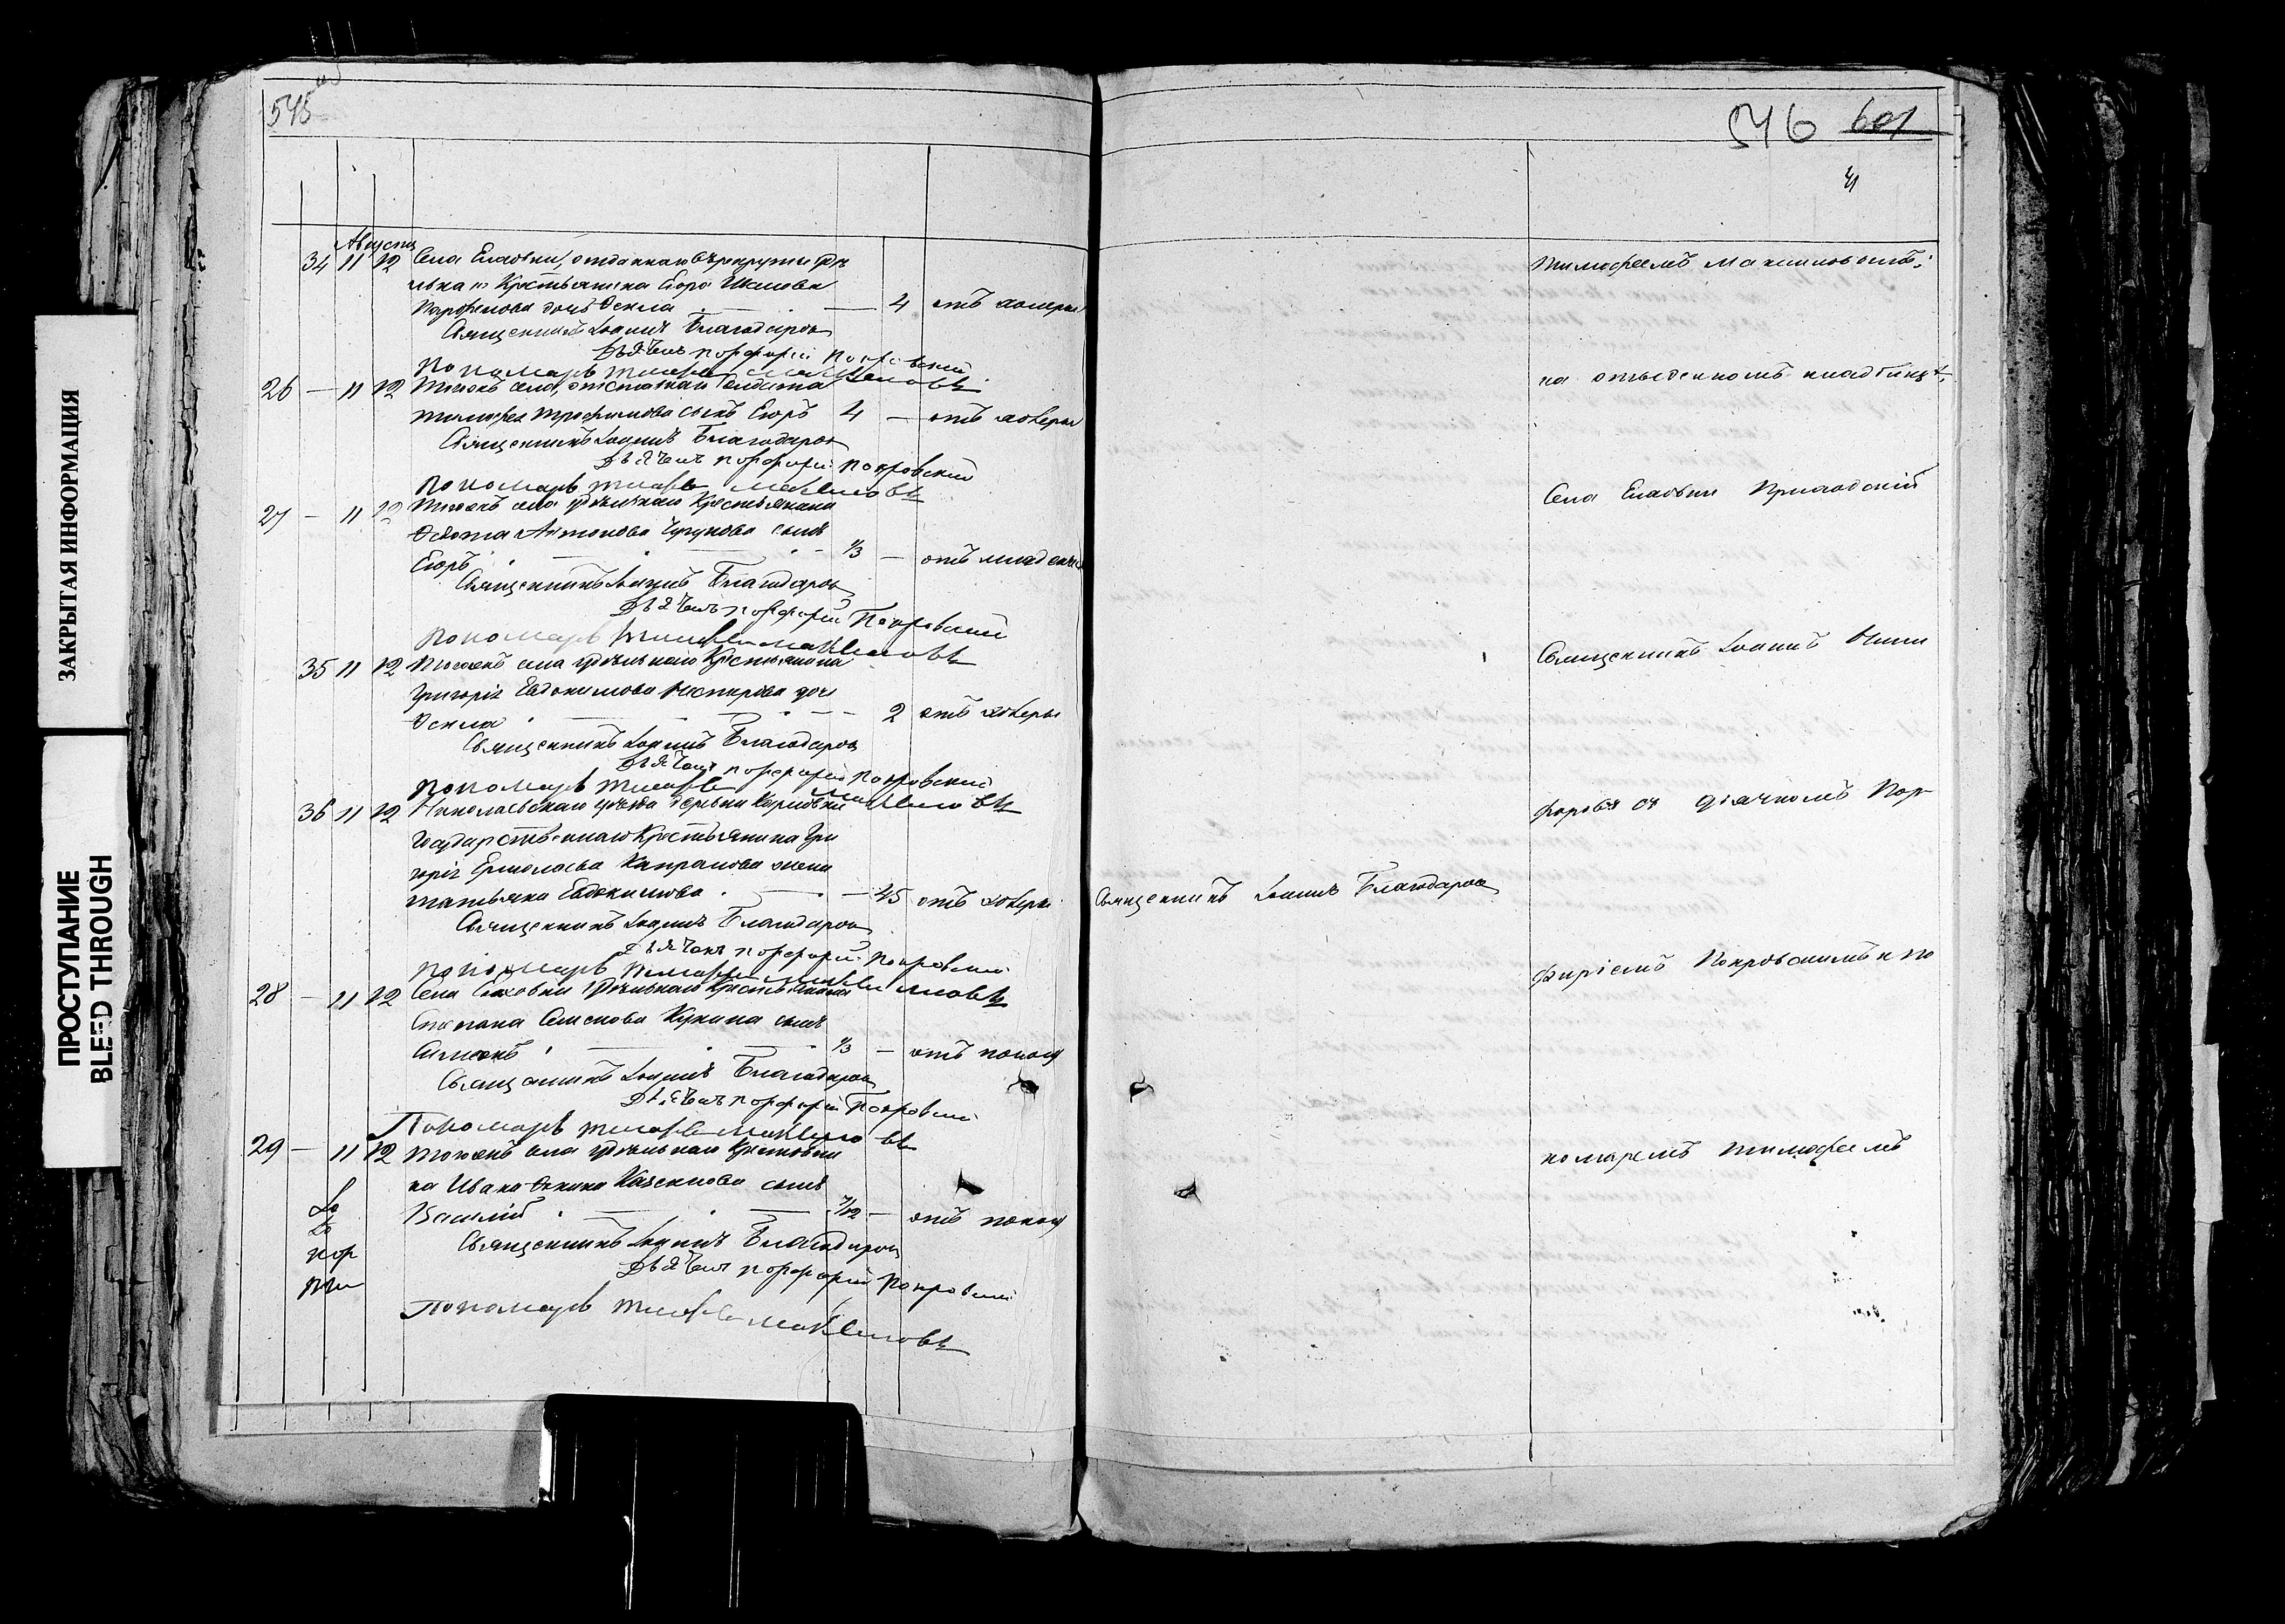 ЗАКРЫТАЯ ИНФОРМАЦИЯ
ПРОСТУПАНИЕ
BLEED THROUGH
545
Августа
34 11 12 Села Елховки, отданнаго въ рекруты
Крестьянина Егора
Парфенова дочь Фекла — 4 отъ холеры
Священникъ Іоаннъ Благодаровъ
Дьячекъ Порфирій Покровскій
Пономарь Тимофей Максимовъ
26 — 11 12 Тогожъ села, отставнаго Солдата
Тимофея Трофимова сынъ Егоръ 4 — отъ холеры
Священникъ Іоаннъ Благодаровъ
Дьячекъ Порфирій Покровскій
Пономарь Тимофей Максимовъ
27 — 11 12 Тогожъ села удѣльнаго Крестьянина
Федота Антонова Чугунова сынъ
Егоръ 1/3 — отъ младенч
Священникъ Іоаннъ Благодаровъ
Дьячекъ Порфирій Покровскій
Пономарь Тимофей Максимовъ
35 11 12 Тогожъ села удѣльнаго Крестьянина
Григорія Евдокимова дочь
Фекла — 2 отъ холеры
Священникъ Іоаннъ Благодаровъ
Дьячекъ Порфирій Покровскій
Пономарь Тимофей Максимовъ
36 11 12 Николаевскаго уѣзда деревни
Государственнаго Крестьянина Гри
горія Ермолаева Капранова жена
Татьяна Евдокимова — 45 отъ холеры
Священникъ Іоаннъ Благодаровъ
Дьячекъ Порфирій Покровскій
Пономарь Тимофей Максимовъ
28 — 11 12 Села Елховки удѣльнаго Крестьянина
Степана Семенова Кукина сынъ
Симеонъ 1/3 — отъ поносу
Священникъ Іоаннъ Благодаровъ
Дьячекъ Порфирій Покровскій
Пономарь Тимофей Максимовъ
29 — 11 12 Тогожъ села удѣльнаго Крестьяни
на Ивана сынъ
Василій 7/12 — отъ поносу
Священникъ Іоаннъ Благодаровъ
Дьячекъ Порфирій Покровскій
Пономарь Тимофей Максимовъ
пор
ти
546 601
Священникъ Іоаннъ Благодаровъ
Тимофеемъ Максимовымъ;
на отведенномъ кладбищѣ.
Села Елховки Приходскій
Священникъ Іоаннъ
форовъ съ дьячкомъ Пор-
фиріемъ Покровскимъ и по
номаремъ Тимофеемъ